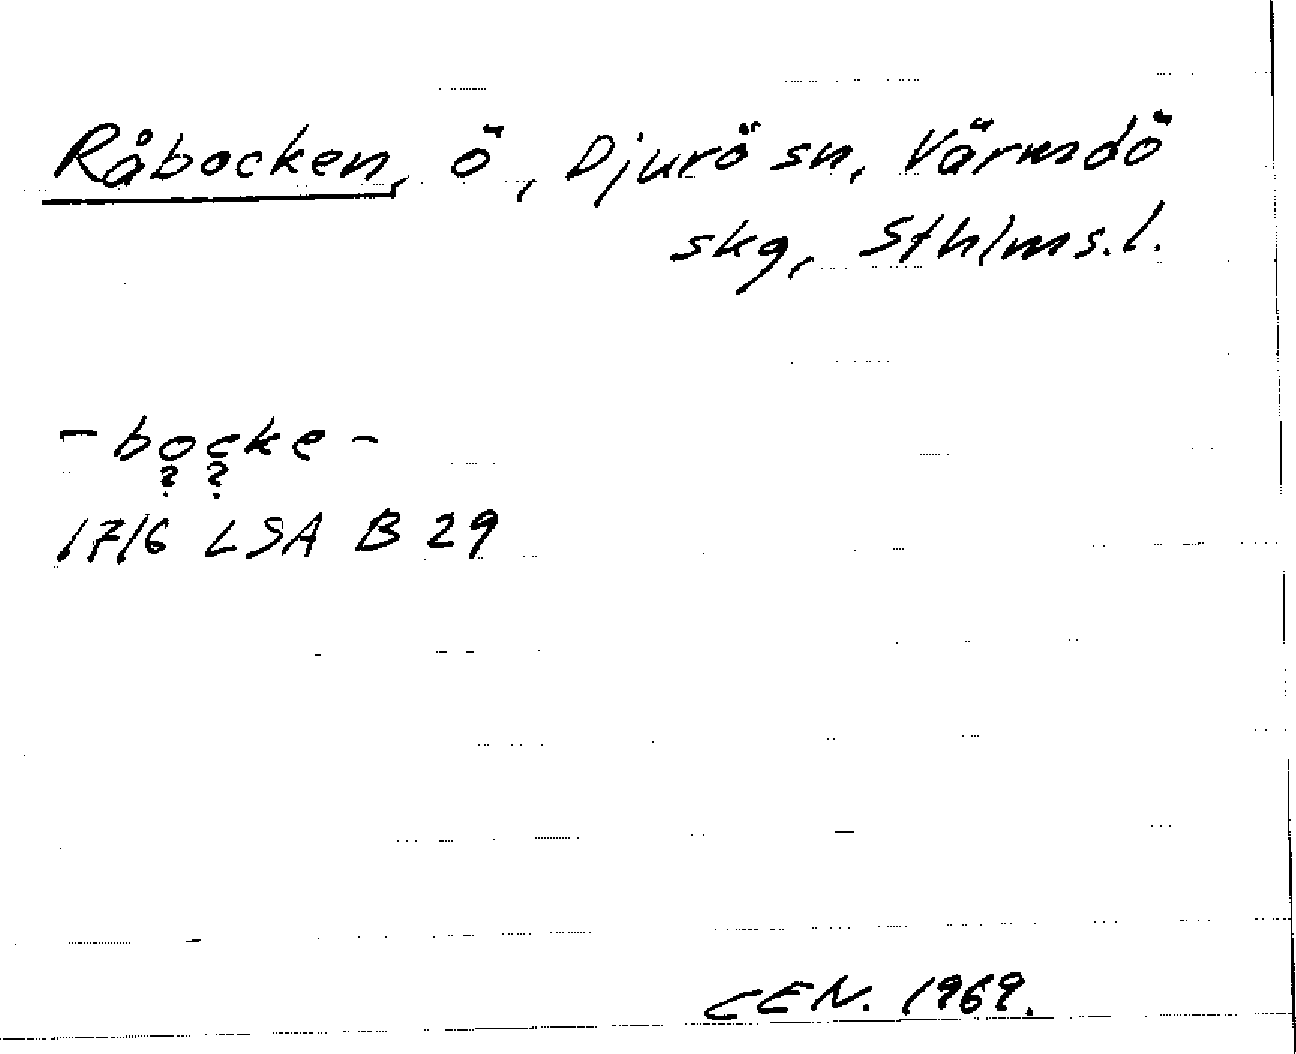 Råbocken, ö, Djurö sn, Värmdö
skg, Sthlms.l.
- bocke -
? ?
1716 LSA B 29
CEN. 1969.